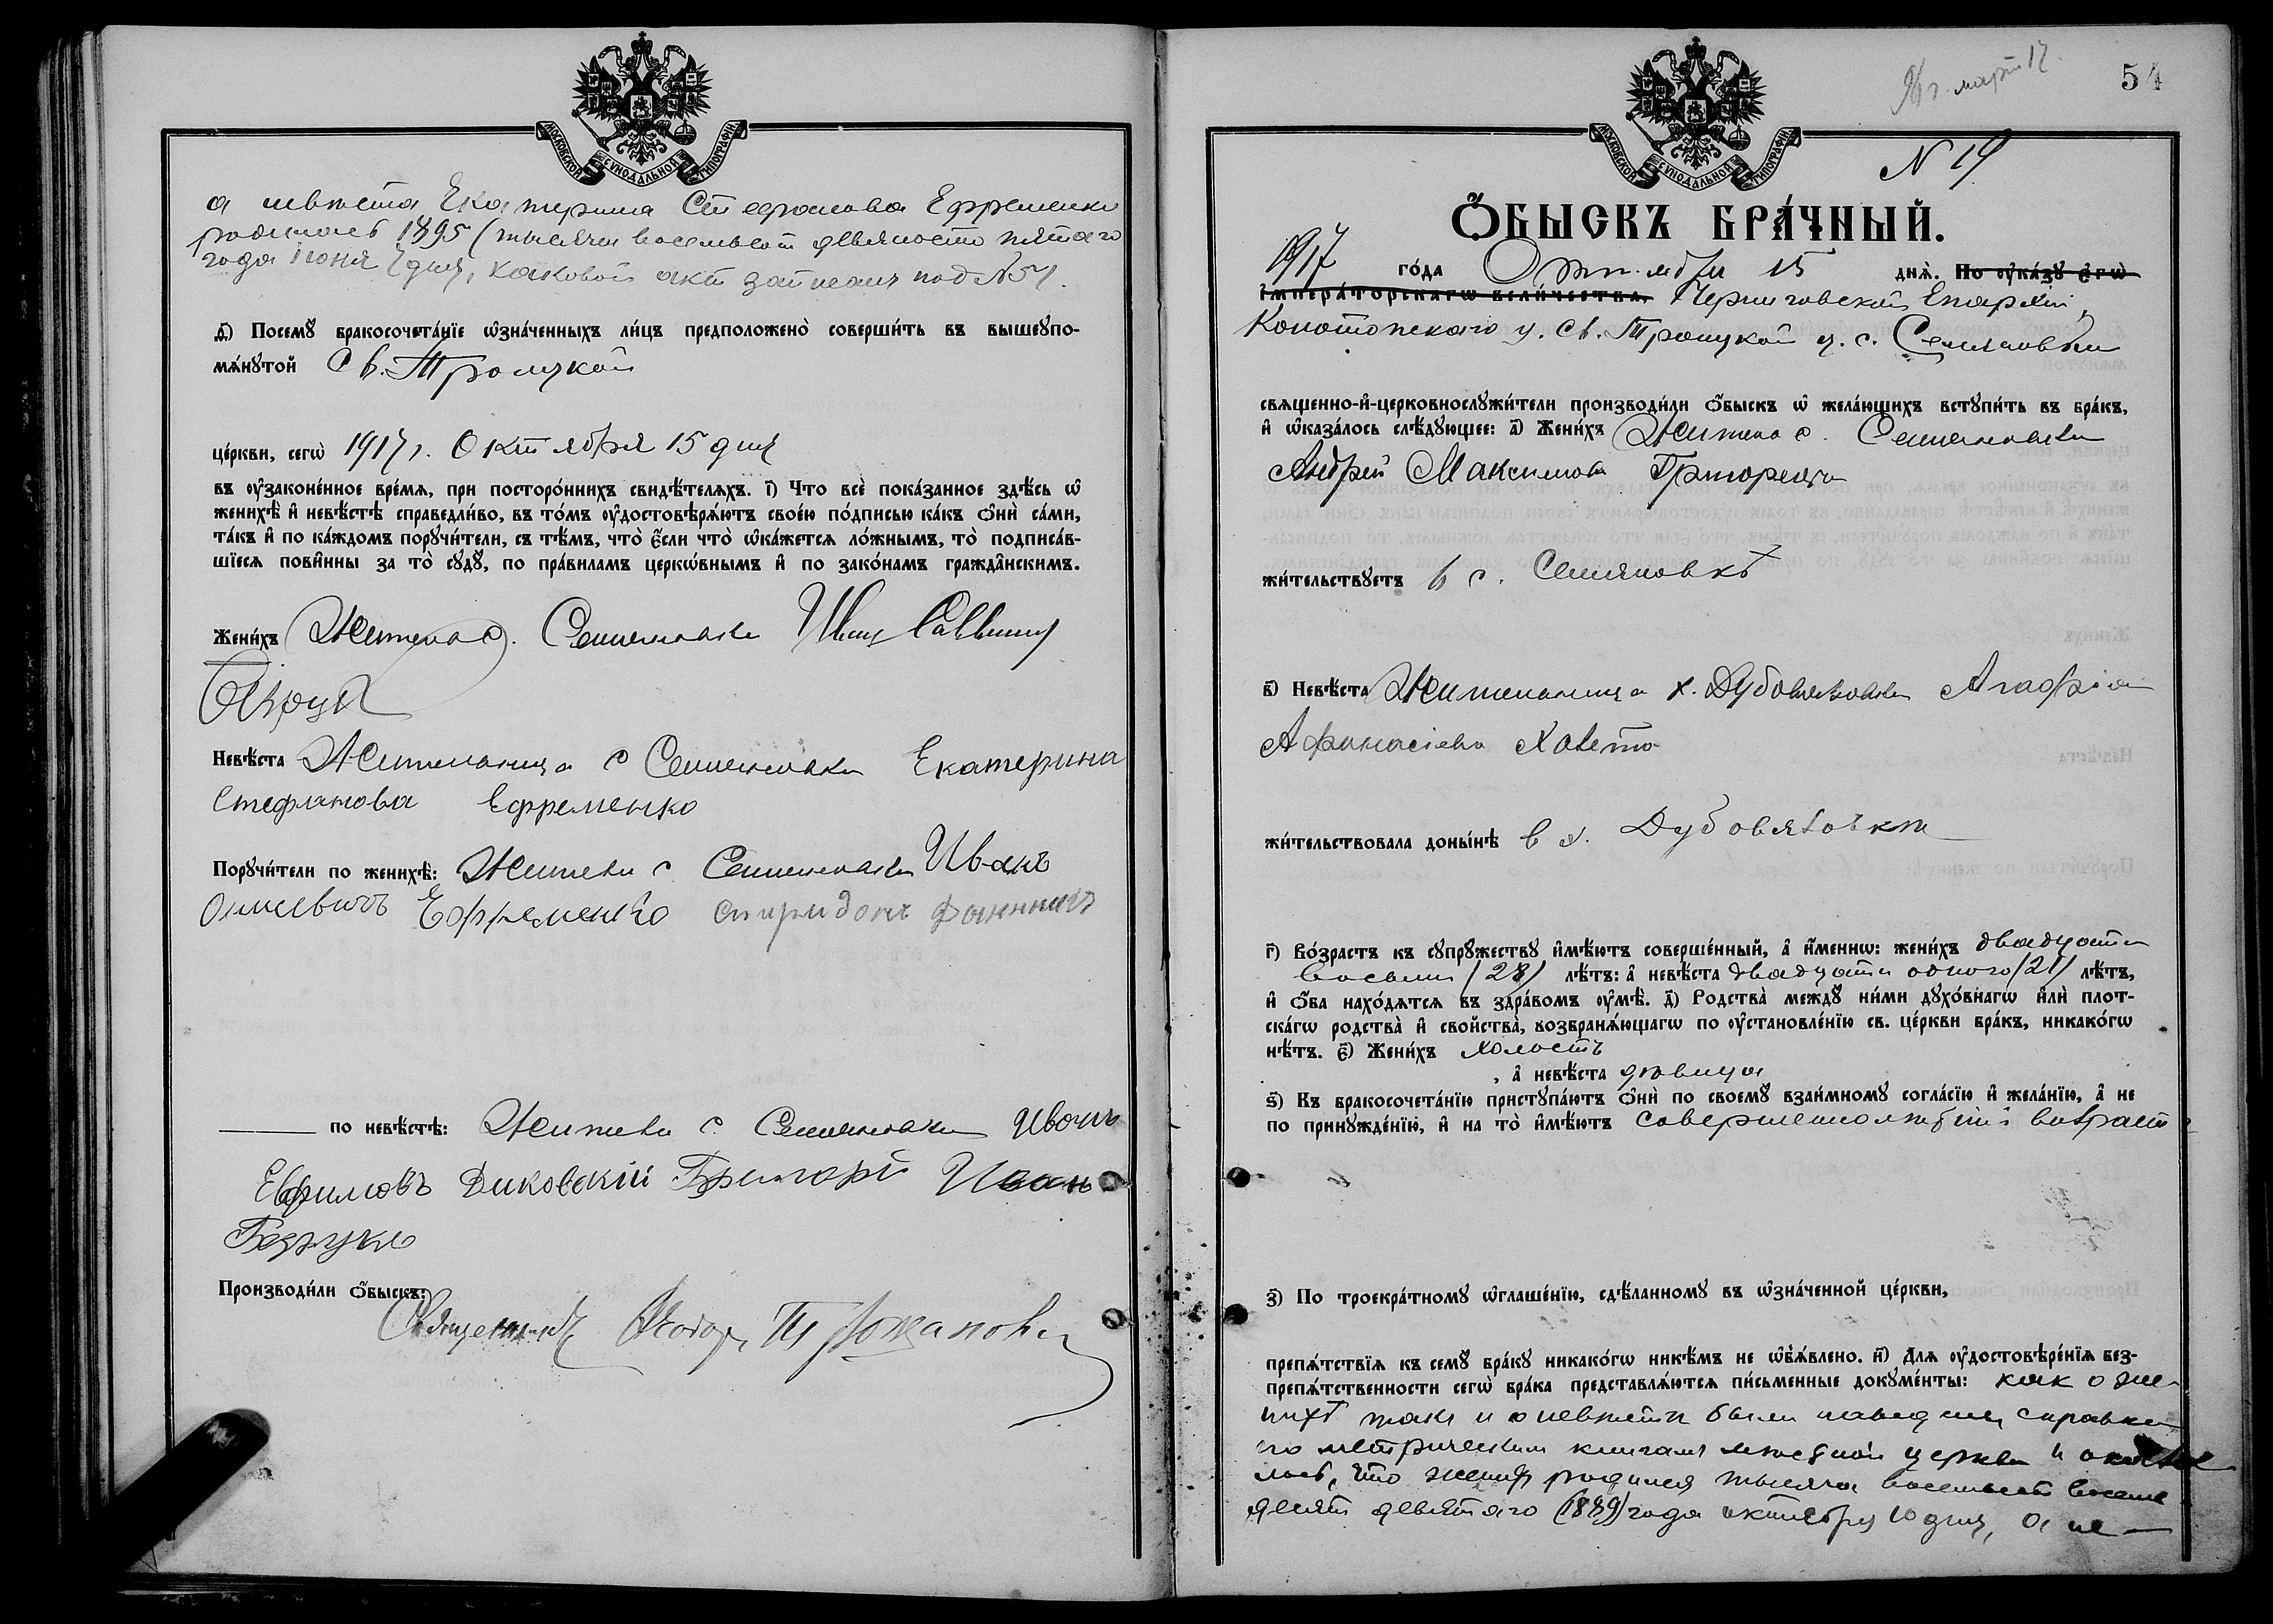 МОСКОВСКОЙ СѴНОДАЛЬНОЙ ТИПОГРАФІИ
а невѣста Екатерина Стефанова Ефременко
родилась 1895 (тысяча восемьсот девяносто пятаго
года Іюня дня, каковой акт записан под №
д҃) Посемꙋ бракосочета́нїе ѡ҆зна́ченныхъ ли́цъ предположено̀ соверши́ть въ вышеꙋпо-
мѧ́нꙋтой Св. Троицкой
це́ркви, сегѡ̀ 1917 г. Октября 15 дня
въ ᲂу҆зако́ненное вре́мѧ, при посторо́ннихъ свидѣ́телѧхъ. і҃) Что всѐ пока́занное здѣ́сь ѡ҆
женихѣ̀ и҆ невѣ́стѣ справедли́во, въ то́мъ ᲂу҆достовѣрѧ́ютъ свое́ю по́дписью ка́къ ѻ҆нѝ са́ми,
та́къ и҆ по ка́ждомъ порꙋчи́тели, съ тѣ́мъ, что̀ є҆́сли что̀ ѡ҆ка́жетсѧ ло́жнымъ, то̀ подписа́в-
шїесѧ пови́нны за то̀ сꙋдꙋ̀, по пра́виламъ церкѡ́внымъ и҆ по зако́намъ гражда́нскимъ.
Жени́хъ Житель с. Семяновки Иван Саввин
Невѣ́ста Жительница с Семяновки Екатерина
Стефанова Ефременко
Порꙋчи́тели по женихѣ̀: Жители с Семяновки Иванъ
Ефременко Спиридонъ
по невѣ́стѣ: Жители с. Семяновки Иванъ
Ефимовъ Диковскій Григорій Иван
Производи́ли ѻ҆́быскъ:
Священникъ Ѳеодор
96 г. март 17.
54
МОСКОВСКОЙ СѴНОДАЛЬНОЙ ТИПОГРАФІИ
N 19
Ѻ҆́БЫСКЪ БРА́ЧНЫЙ.
1917 го́да Октября 15 днѧ̀. По ᲂу҆ка́зꙋ є҆гѡ̀
і҆мпера́торскагѡ вели́чества, Черниговской Епархіи,
Конотопскаго у. Св. Троицкой ц. с. Семяновки
свѧщенно-и҆-церковнослꙋжи́тели производи́ли ѻ҆́быскъ ѡ҆ жела́ющихъ встꙋпи́ть въ бра́къ,
и҆ ѡ҆каза́лось слѣ́дꙋющее: а҃) Жени́хъ Житель с. Семяновки
Андрей Максимов
жи́тельствꙋетъ в с. Семяновкѣ
в҃) Невѣ́ста Жительница х. Дубовязовки Агафія
Афанасіева
жи́тельствовала доны́нѣ в х.
г҃) Во́зрастъ къ сꙋпрꙋ́жествꙋ и҆мѣ́ютъ соверше́нный, а҆ и҆́меннѡ: жени́хъ двадцати
восьми (28) лѣ́тъ: а҆ невѣ́ста двадцати одного (21) лѣ́тъ,
и҆ ѻ҆́ба нахо́дѧтсѧ въ здра́вомъ ᲂу҆мѣ̀. д҃) Родства̀ междꙋ̀ ни́ми дꙋхо́внагѡ и҆лѝ плот-
ска́гѡ родства̀ и҆ свойства̀, возбранѧ́ющагѡ по ᲂу҆становле́нїю св. це́ркви бра́къ, никако́гѡ
нѣ́тъ. є҃) Жени́хъ холостъ
, а҆ невѣ́ста дѣвица
ѕ҃) Къ бракосочета́нїю пристꙋпа́ютъ ѻ҆нѝ по своемꙋ̀ взаи́мномꙋ согла́сїю и҆ жела́нїю, а҆ не
по принꙋжде́нїю, и҆ на то̀ и҆мѣ́ютъ совершеннолѣтній возраст
з҃) По троекра́тномꙋ ѡ҆глаше́нїю, сдѣ́ланномꙋ въ ѡ҆зна́ченной це́ркви,
препѧ́тствїѧ къ семꙋ̀ бра́кꙋ никако́гѡ никѣ́мъ не ѡ҆б̾ѧ́влено. и҃) Длѧ ᲂу҆достовѣре́нїѧ без-
препѧ́тственности сегѡ̀ бра́ка представлѧ́ютсѧ пи́сьменные докꙋме́нты: как о же-
нихѣ так и о невѣсте были наведены справки
по метрическим книгам мѣстной церкви и оказа
лось, что жених родился тысяча восемьсот восемь
десят девятаго (1889) года октября 10 дня, а не—